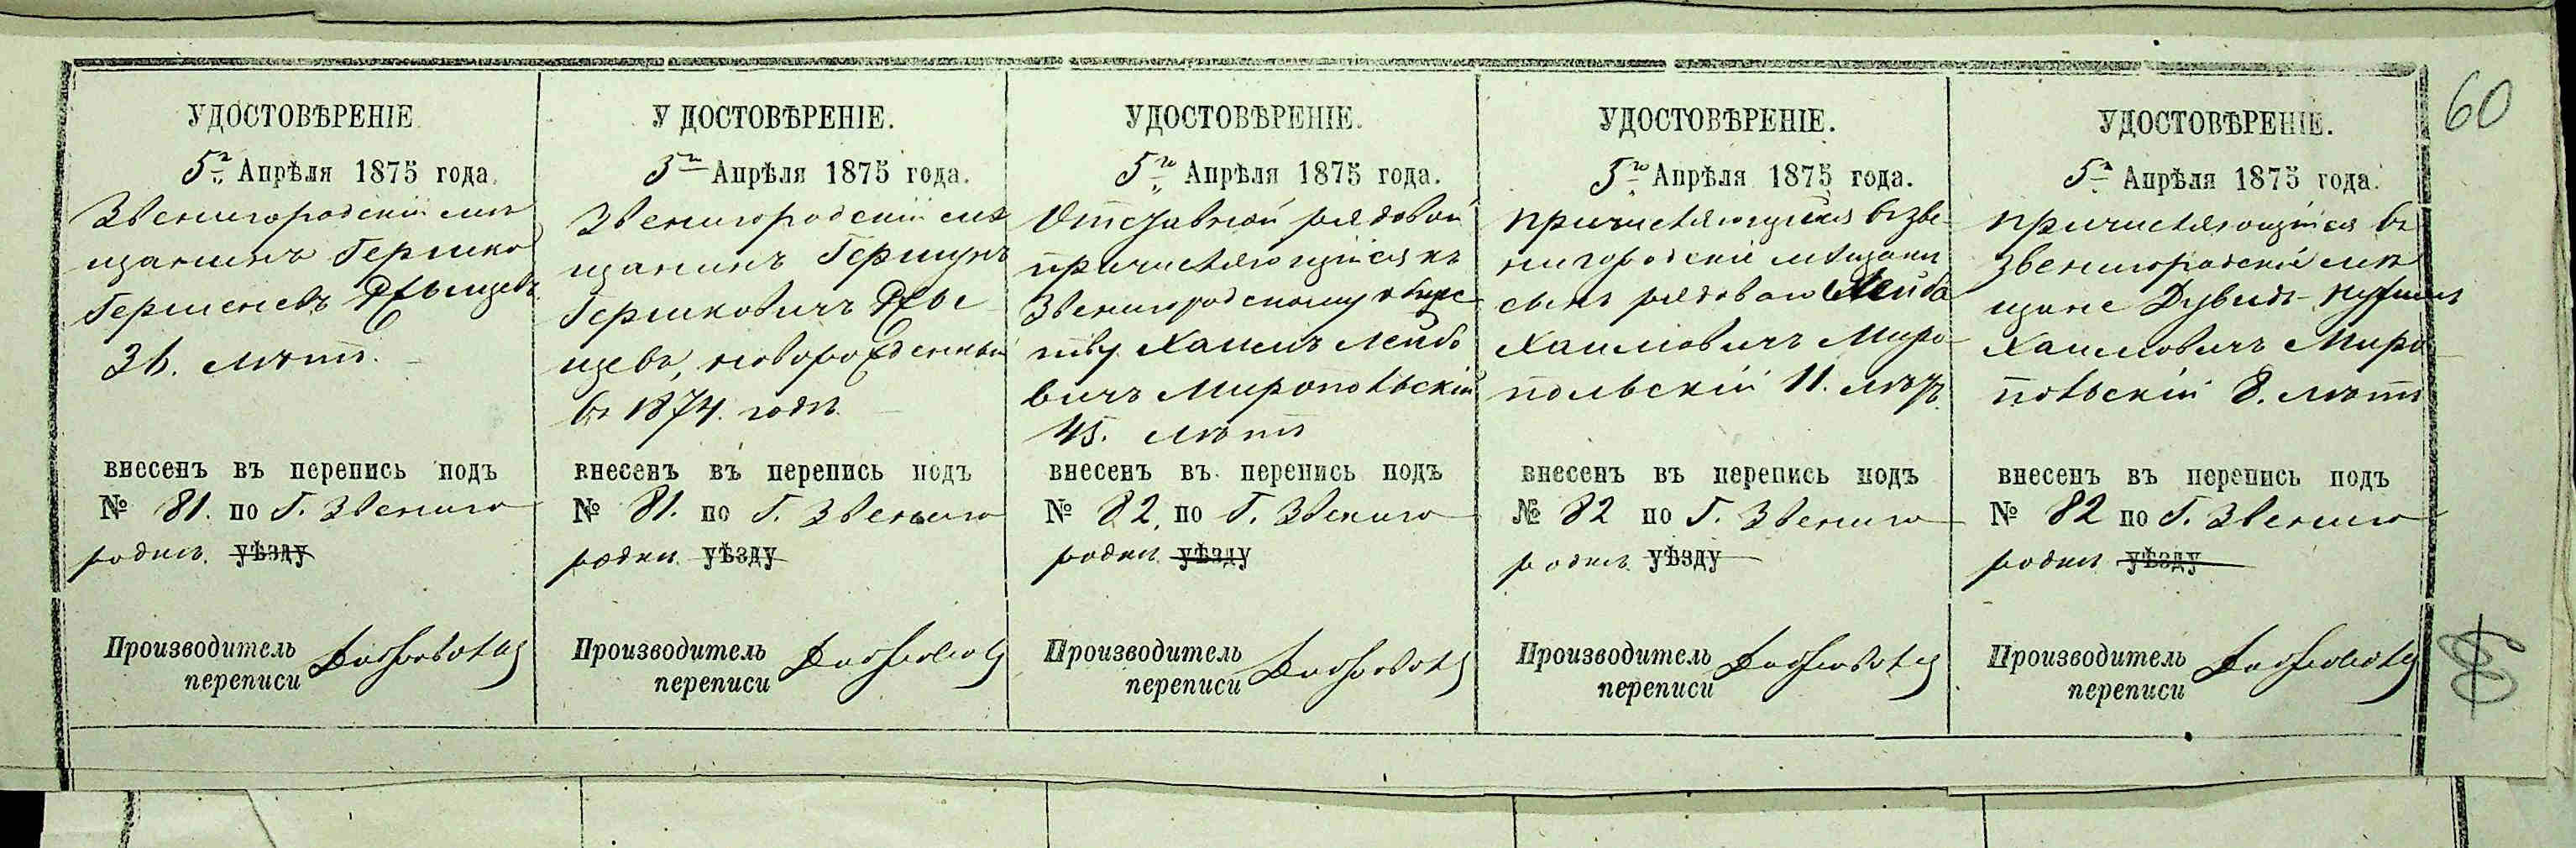 60
УДОСТОВѢРЕНІЕ
5го Апрѣля 1875 года.
Звенигородскій мѣ
щанинъ Гершко
Гершеневъ
36. лѣтъ.
внесенъ въ перепись подъ
№ 81. по Г. Звениго
родкѣ. уѣзду
Производитель
переписи
УДОСТОВѢРЕНІЕ.
5го Апрѣля 1875 года.
Звенигородскій мѣ
щанинъ Гершунъ
Гершковичъ
щевъ, новорожденный
въ 1874. годѣ.
внесенъ въ перепись подъ
№ 81. по Г. Звениго
родкѣ уѣзду
Производитель
переписи
УДОСТОВѢРЕНІЕ.
5го Апрѣля 1875 года.
Отставной рядовой
причисляющійся къ
Звенигородскому общес
тву Хаимъ Лейбо
вичъ Миропольскій
45. лѣтъ
внесенъ въ перепись подъ
№ 82. по Г. Звениго
родкѣ уѣзду
Производитель
переписи
УДОСТОВѢРЕНІЕ.
5го Апрѣля 1875 года.
причисляющійся въ Зве-
нигородскіе мѣщани
сынъ рядоваго Лейба
Хаимовичъ Миро-
польскій 11. лѣтъ
внесенъ въ перепись подъ
№ 82 по Г. Звениго
родкѣ. уѣзду
Производитель
переписи
УДОСТОВѢРЕНІЕ.
5го Апрѣля 1875 года.
причисляющійся въ
Звенигородскіе мѣ
щане Дувидъ-
Хаимовичъ Миро-
польскій 8. лѣтъ
внесенъ въ перепись подъ
№ 82 по Г. Звениго
родкѣ уѣзду
Производитель
переписи